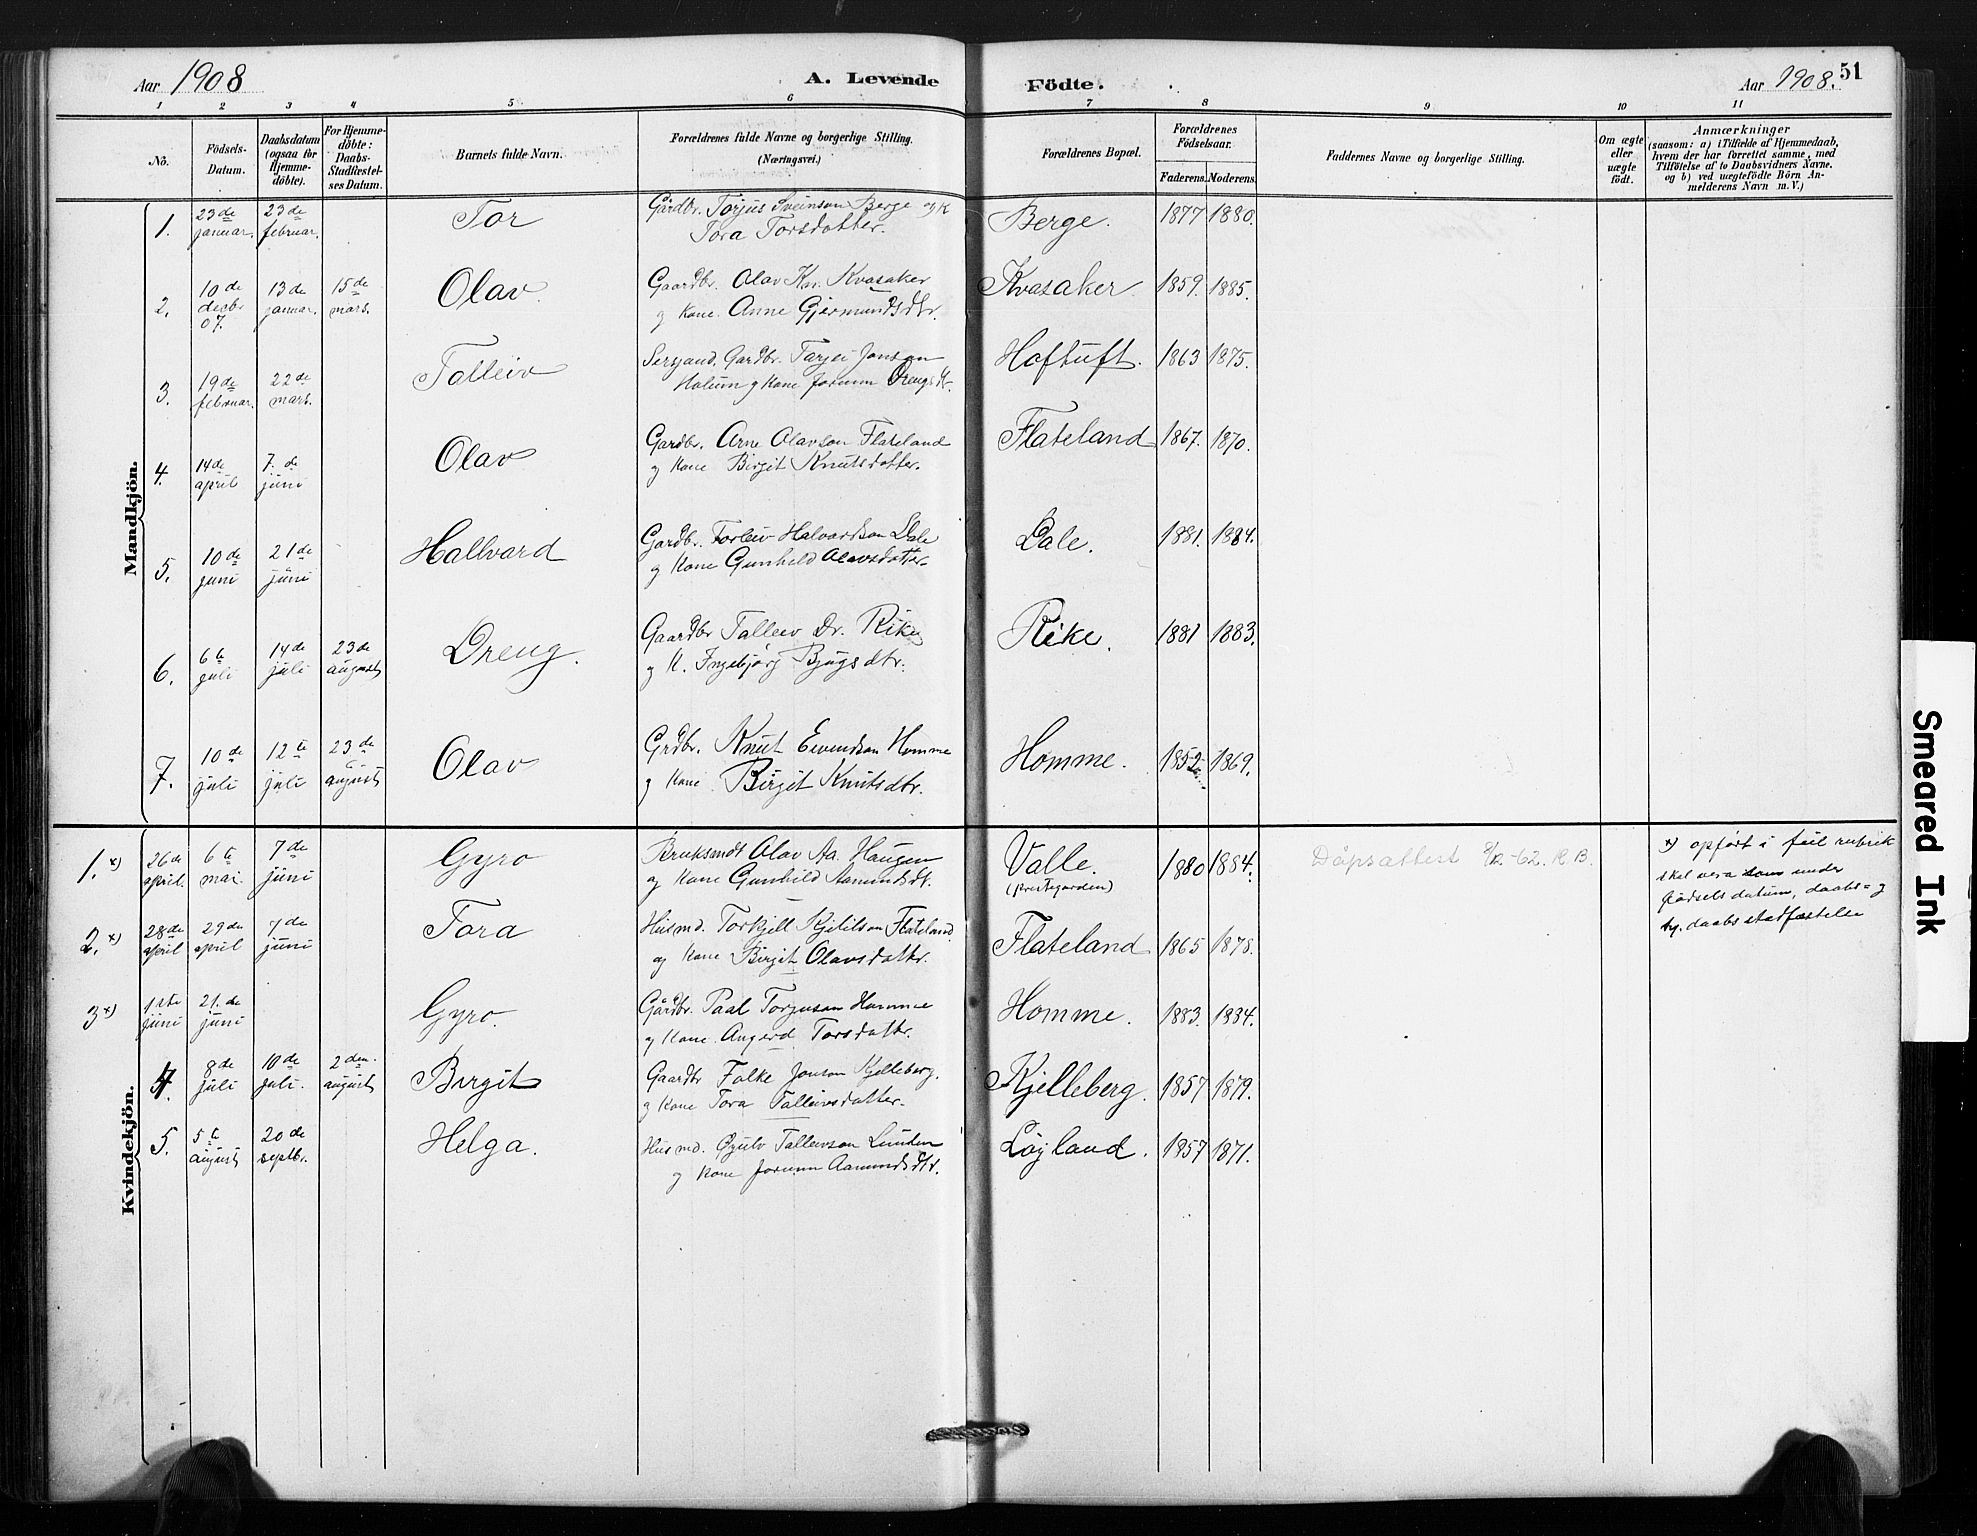 Aar 1908
A. Levende
Födte.
Aar 1908. 51
1 2 3 4 5 6 7 8 9 10 11
No.
Födsels-
Datum.
Daabsdatum
(ogsaa for
Hjemme-
döbte).
For Hjemme-
döbte:
Daabs-
Stadfæstel-
ses Datum.
Barnets fulde Navn.
Forældrenes fulde Navne og borgerlige Stilling.
(Næringsvei.)
Forældrenes Bopæl.
Forældrenes
Födselsaar.
Faderens. Moderens.
Faddernes Navne og borgerlige Stilling.
Om ægte
eller
uægte
födt.
Anmærkninger
(saasom: a) i Tilfælde af Hjemmedaab,
hvem der har forrettet samme, med
Tilföielse af to Daabsvidners Navne.
og b) ved uægtefödte Börn An-
melderens Navn m. V.)
Mandkjön.
1. 23de januar. 23de februar. Tor Gardbr. Torjus Sveinson Berge og K Berge. 1877 1880.
Tora Torsdotter.
2. 10de decbr 07. 13de januar. 15de mars. Olav Gaardbr. Olav Kn. Kvasaker Kvasaker 1859. 1885.
og Kone Anne Gjermundsdtr.
3. 19de februar. 22de mars. Talleiv Sersjand. Gardbr. Tarjei Jonson Hoftuft. 1863 1875.
Holum og Kone Jorunn Drengsdtr.
4. 14de april 7.de juni Olav Gardbr. Arne Olavson Flateland Flateland 1867. 1870.
og Kone Birgit Knutsdotter.
5. 10de juni 21de juni Hallvard Gardbr. Torleiv Halvardson Dale Dale. 1881. 1884.
og Kone Gunhild Olavsdotter
6. 6te juli 14de juli 23de august Dreng. Gaardbr Talleiv Dr. Rike Rike. 1881 1883.
og K. Ingebjørg Bjugsdtr.
7. 10de juli 12te juli 23de august Olav Grdbr. Knut Eivendson Homme Homme. 1852 1869.
og Kone Birgit Knutsdtr.
Kvindekjön.
1. x) 26de april. 6te mai 7de juni Gyro Bruksmdt Olav Aa. Haugen Valle. 1880 1884. Dåpsattest -62. R B.
og Kone Gunhild Aamundsdt. (Prestegarden)
x) opført i feil rubrik
skal vera som under
fødsels datum, daabs- og
hj. daabs stadfæstelse
2. x) 28de april 29de april 7de juni Tora Husmd. Torkjell Kjetilson Flateland Flateland 1865 1878.
og Kone Birgit Olavsdottr.
3 x) 1ste juni 21.de juni Gyro. Gårdbr. Paal Torjuson Homme Homme. 1883. 1884.
og Kone Angerd Torsdottr.
4. 8de juli 10de juli. 2den august Birgit Gaardbr Folke Jonson Kjelleberg. Kjelleberg. 1857 1879.
og Kone Tora Talleivsdotter.
5. 5te august 20de septbr. Helga. Husmd. Gjulv Talleivson Lunden Løyland. 1857 1871.
og Kone Jorunn Aamundsdtr.
Smeared Ink